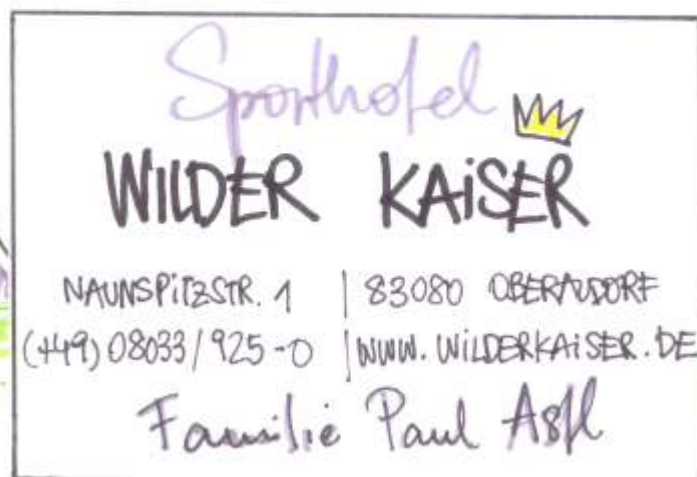 Sporthotel
WILDER KAiSER
NAUNSPiTZSTR. 1 | 83080 OBERAUDORF
(+49) 08033/925-0 | WWW.WiLDERKAiSER.DE
Familie Paul Astl